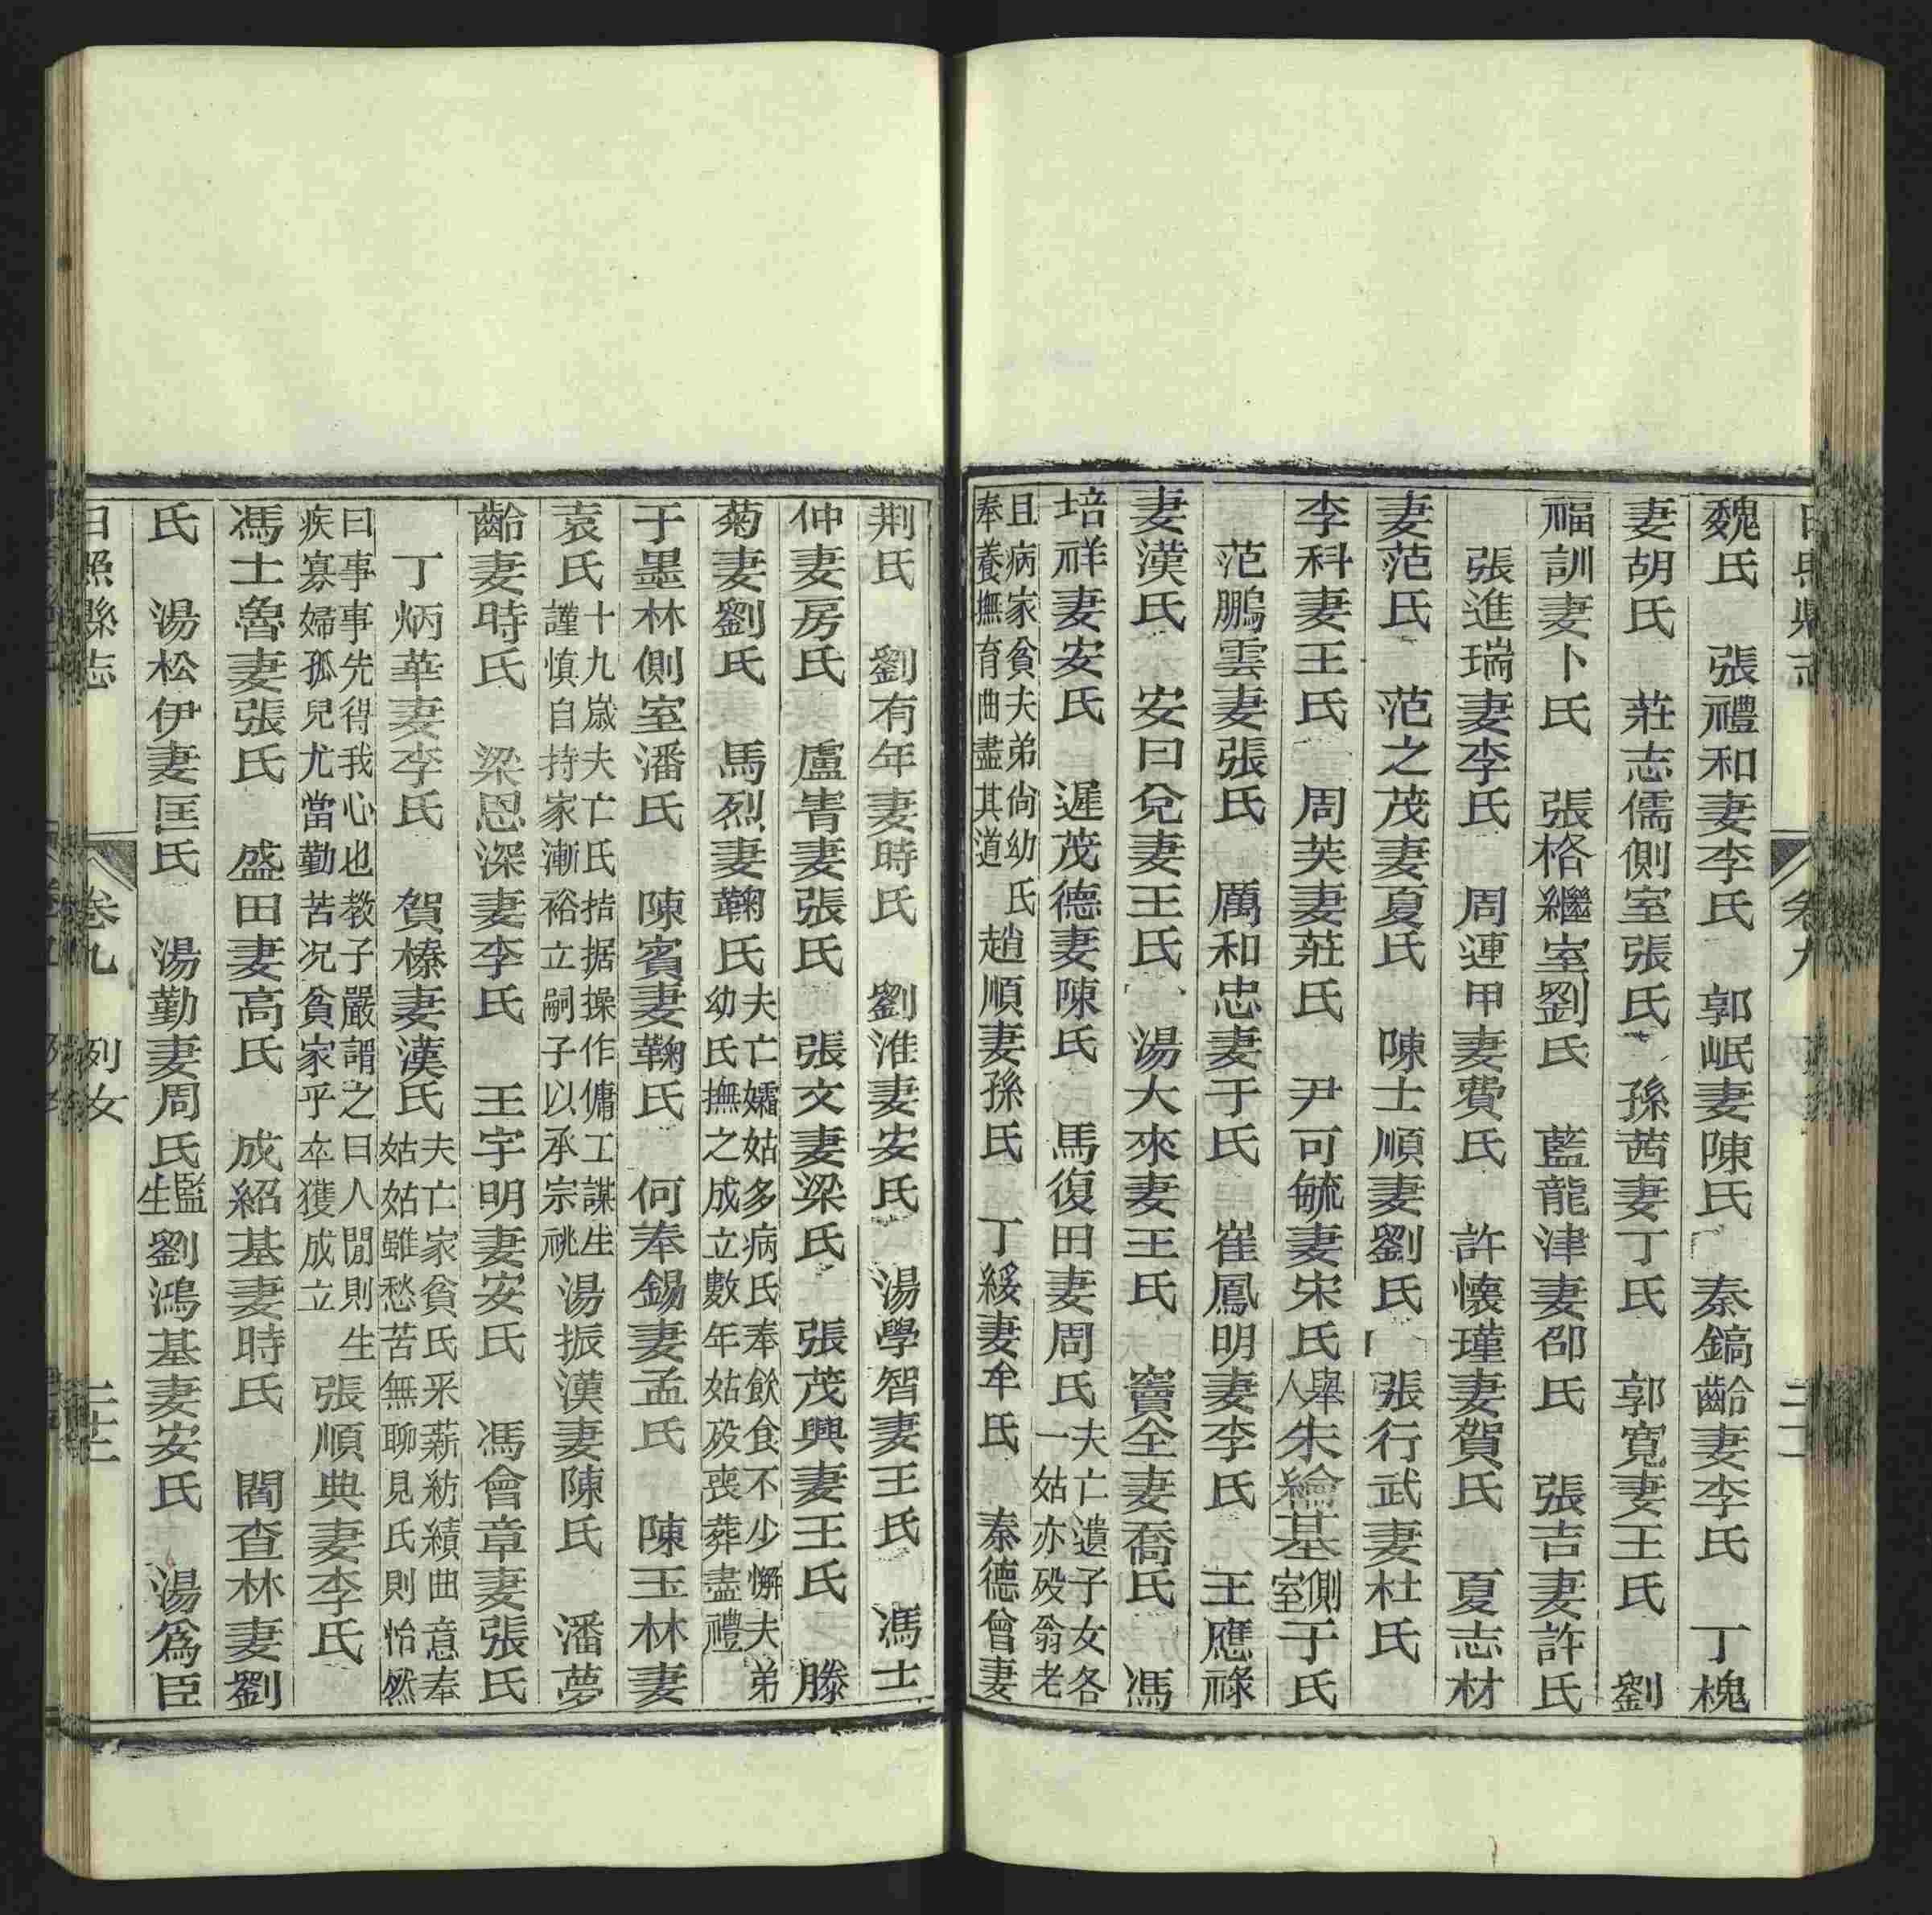 日照縣志 卷九 二十一
魏氏 張禮和妻李氏 郭岷妻陳氏 秦鎬齡妻李氏 丁槐
妻胡氏 莊志儒側室張氏 孫茜妻丁氏 郭寬妻王氏 劉
福訓妻卜氏 張格繼室劉氏 藍龍津妻邵氏 張吉妻許氏
張進瑞妻李氏 周連甲妻費氏 許懷瑾妻賀氏 夏志材
妻范氏 范之茂妻夏氏 陳士順妻劉氏 張行武妻杜氏
李科妻王氏 周芙妻莊氏 尹可毓妻宋氏 舉人朱綸基側室于氏
范鵬雲妻張氏 厲和忠妻于氏 崔鳳明妻李氏 王應祿
妻漢氏 安曰兌妻王氏 湯大來妻王氏 竇全妻喬氏 馮
培祥妻安氏 遲茂德妻陳氏 馬復田妻周氏 夫亡遺子女各一姑亦歿翁老
且病家貧夫弟尙幼氏奉養撫育曲盡其道 趙順妻孫氏 丁綏妻牟氏 秦德曾妻
荆氏 劉有年妻時氏 劉淮妻安氏 湯學智妻王氏 馮士
仲妻房氏 盧胄妻張氏 張文妻梁氏 張茂興妻王氏 滕
菊妻劉氏 馬烈妻鞠氏 夫亡孀姑多病氏奉飲食不少懈夫弟幼氏撫之成立數年姑歿喪葬盡禮
于墨林側室潘氏 陳賓妻鞠氏 何奉錫妻孟氏 陳玉林妻
袁氏 十九歲夫亡氏拮据操作傭工謀生謹慎自持家漸裕立嗣子以承宗祧 湯振漢妻陳氏 潘夢
齡妻時氏 梁恩深妻李氏 王宇明妻安氏 馮會章妻張氏
丁炳華妻李氏 賀榛妻漢氏 夫亡家貧氏釆薪紡績曲意奉姑姑雖愁苦無聊見氏則怡然
曰事事先得我心也教子嚴謂之曰人閒則生疾寡婦孤兒尤當勤苦况貧家乎卒獲成立 張順典妻李氏
馮士魯妻張氏 盛田妻高氏 成紹基妻時氏 閻查林妻劉
氏 湯松伊妻匡氏 湯勤妻周氏 監生劉鴻基妻安氏 湯爲臣
日照縣志 卷九 列女 二十二